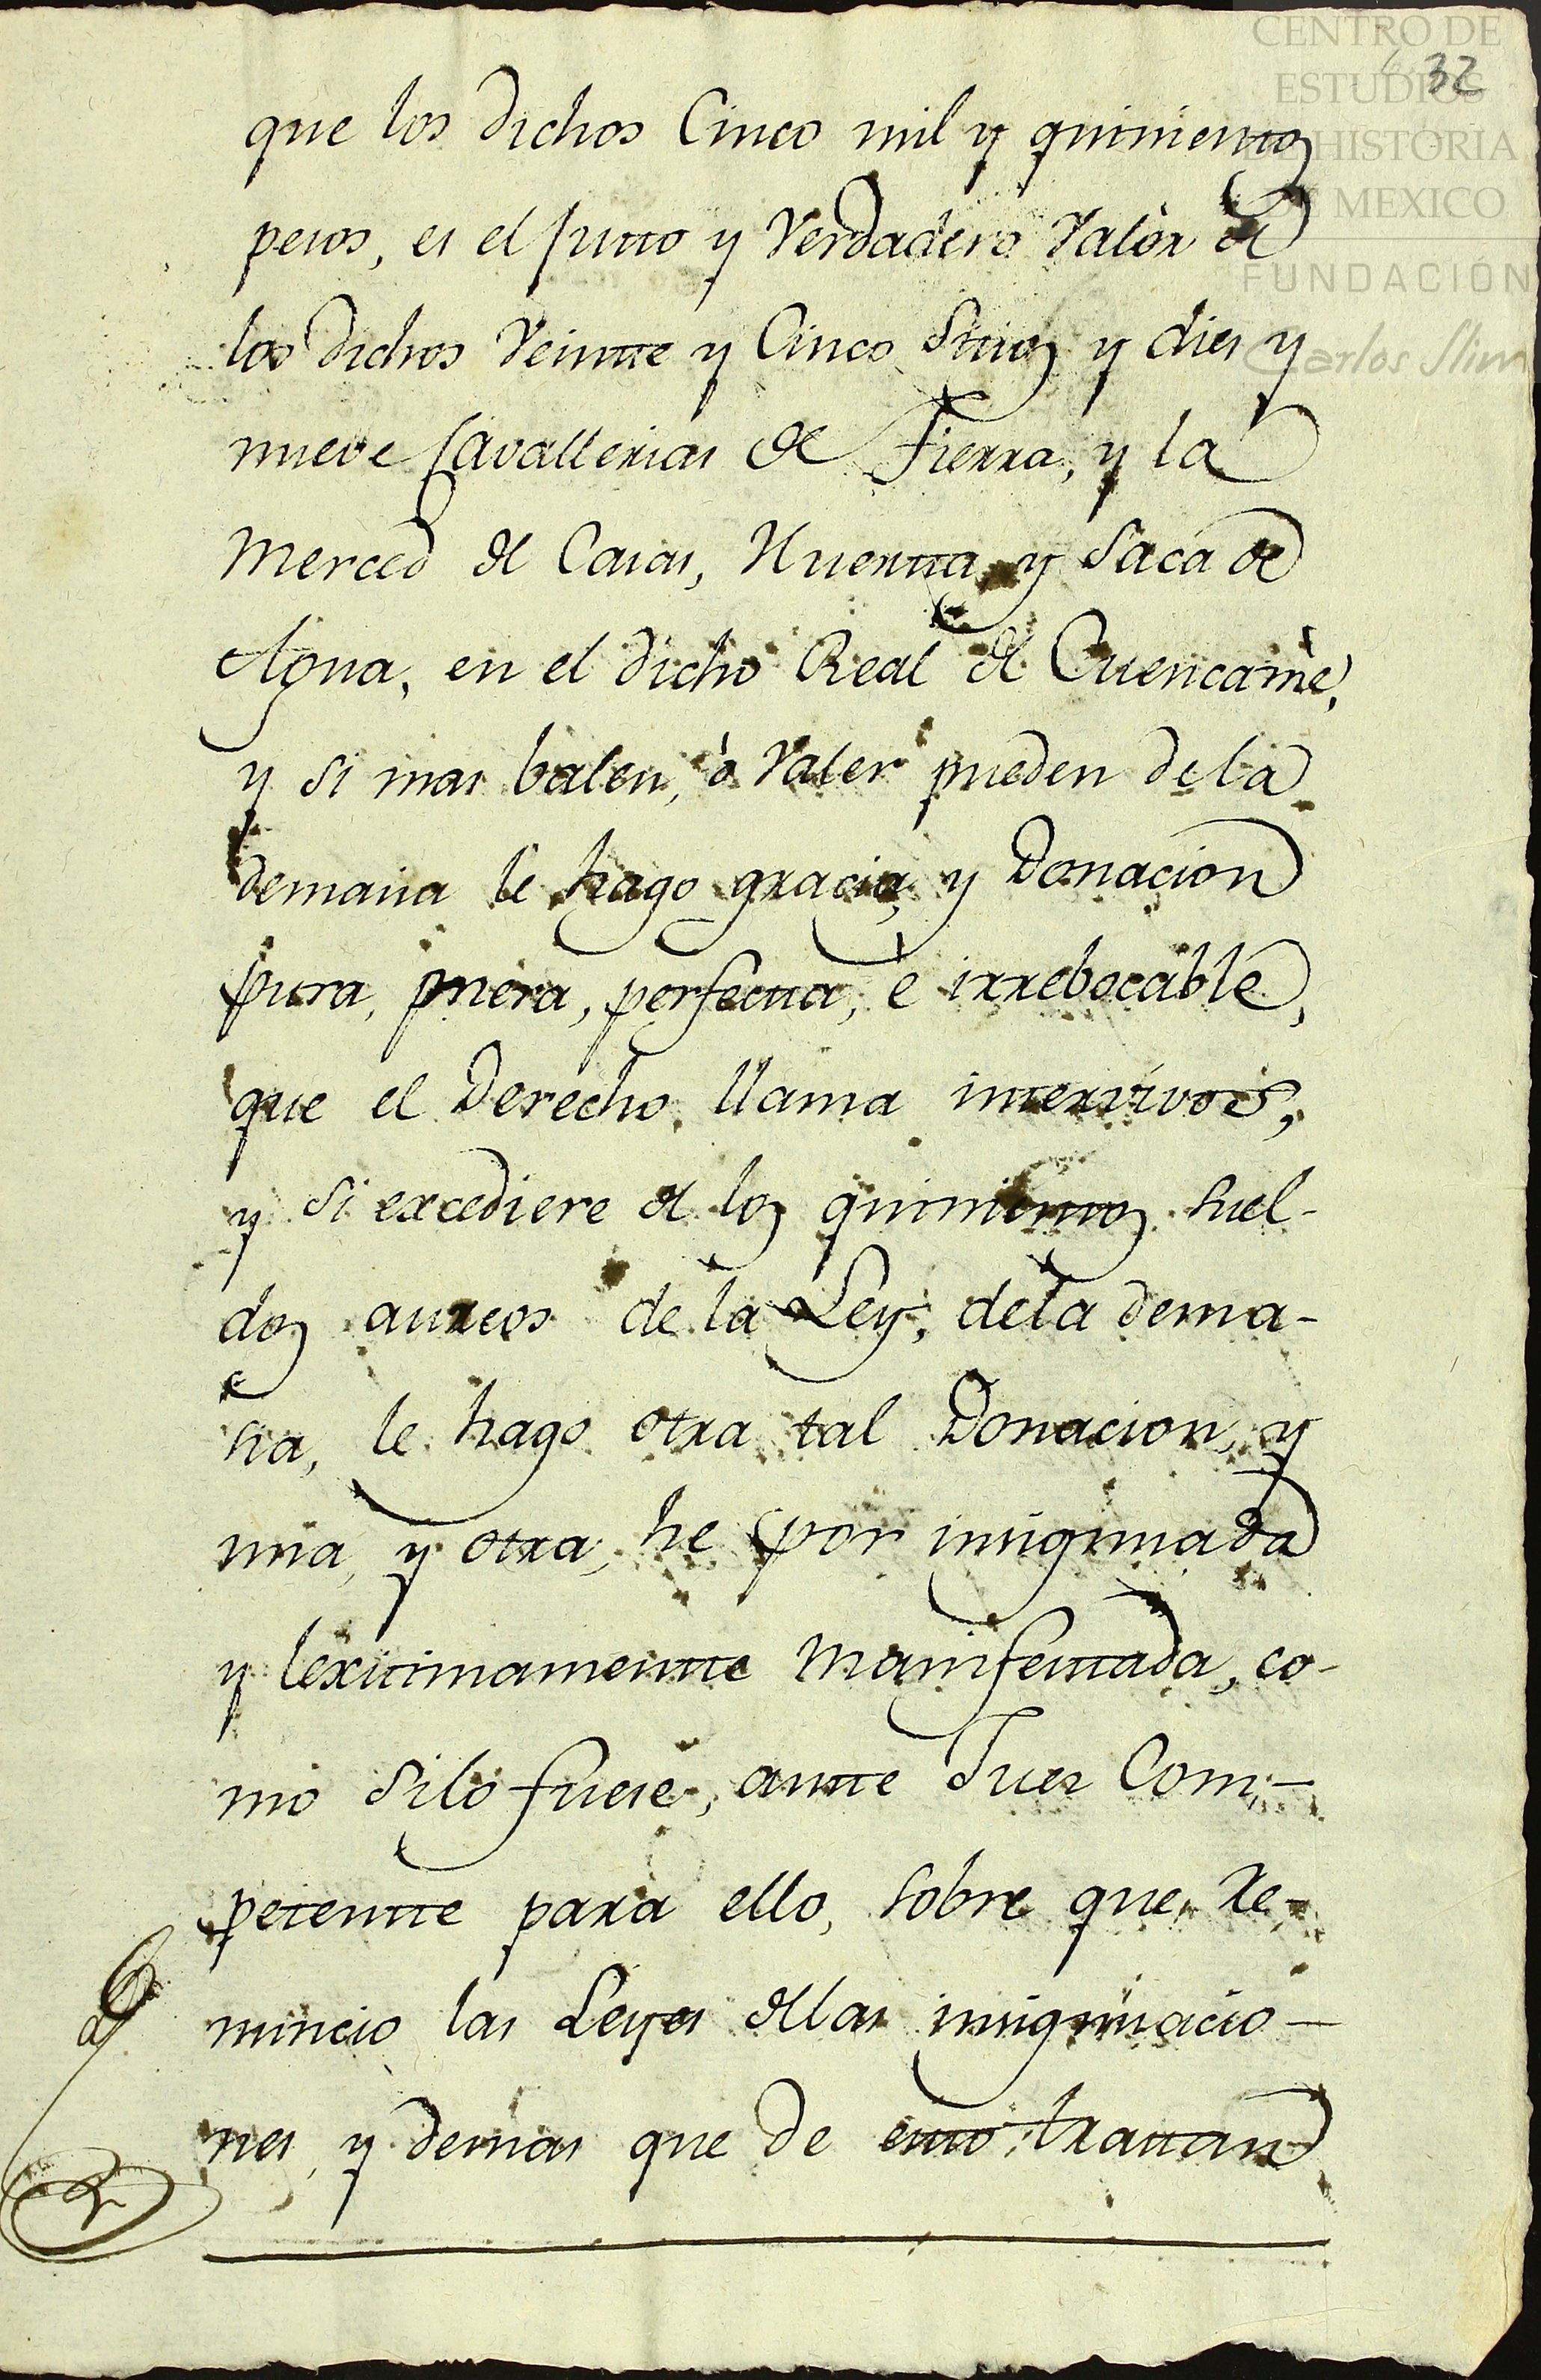 CENTRO DE
ESTUDIOS
DE HISTORIA
DE MEXICO
FUNDACIÓN
Carlos Slim
32
que los dichos Cinco mil y quinientos
pesos, es el justo y Verdadero Valor de
los dichos Veinte y Cinco Sitios y dies y
nueve Cavallerias de Tierra, y la
Merced de Casas, Huerta, y Saca de
Agua, en el dicho Real de Cuencamè,
y si mas balen, ò Valer pueden de la
demasia le hago gracia, y Donacion
pura, mera, perfecta, è irrebocable,
que el Derecho llama intervivos,
y si excediere de los quinientos suel-
dos aureos de la Ley, dela dema-
sia, le hago otra tal Donacion, y
una, y otra, he por insignuada
y lexitimamente manifestada, co-
mo silo fuese, ante Jues Com-
petente para ello, sobre que re-
nuncio las Leyes dellas insignuacio-
nes, y demas que de esto tratan